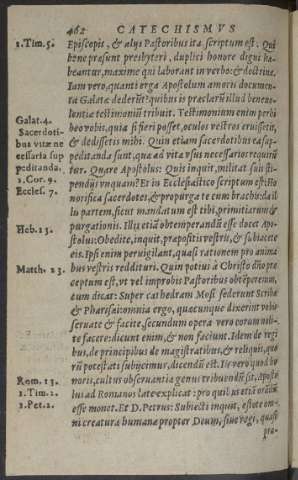 462 CATECHISMVS
1. Tim. 5. Episcopis, & alijs Pastoribus ita scriptum est. Qui
bene præsunt presbyteri, duplici honore digni ha-
beantur, maxime qui laborant in verbo: & doctrina.
Iam vero, quanti erga Apostolum amoris documen-
ta Galatæ dederũt? quibus is præclarũ illud beneuo-
lentiæ testimoniũ tribuit. Testimonium enim perhi
Galat. 4. beo vobis, quia si fieri posset, oculos vestros eruissetis,
Sacerdoti- & dedissetis mihi. Quin etiam sacerdotibus ea sup-
bus vitæ ne peditanda sunt, quæ ad vitæ vsus necessarios requirũ
cessaria sup tur. Quare Apostolus: Quis inquit, militat suis sti-
peditanda. pendijs vnquam? Et in Ecclesiastico scriptum est: Ho
1. Cor. 9. norifica sacerdotes, & propurga te cum brachijs: da il
Eccles. 7. lis partem, sicut mandatum est tibi, primitiarum &
purgationis. Illis etiã obtemperandũ esse docet Apo-
Heb. 13. stolus: Obedite, inquit, præpositis vestris, & subiacete
eis. Ipsi enim peruigilant, quasi rationem pro anima
bus vestris reddituri. Quin potius à Christo dño præ
Matth. 23. ceptum est, vt vel improbis Pastoribus obtẽperemus,
cum dicat: Super cathedram Mosi sederunt Scribæ
& Pharisæi: omnia ergo, quæcunque dixerint vobis
seruate & facite, secundum opera vero eorum noli-
te facere: dicunt enim, & non faciunt. Idem de regi
bus, de principibus de magistratibus, & reliquis, quo
rũ potestati subijcimur, dicendũ est. Iis vero quod ho
Rom. 13. noris, cultus obseruantiæ genus tribuendũ sit, Aposto
1. Tim. 2. lus ad Romanos late explicat: pro quibus etiã orãdũ
1. Pet. 2. esse monet. Et D. Petrus: Subiecti inquit, estote om-
ni creaturæ humanæ propter Deum, siue regi, quasi
præ-